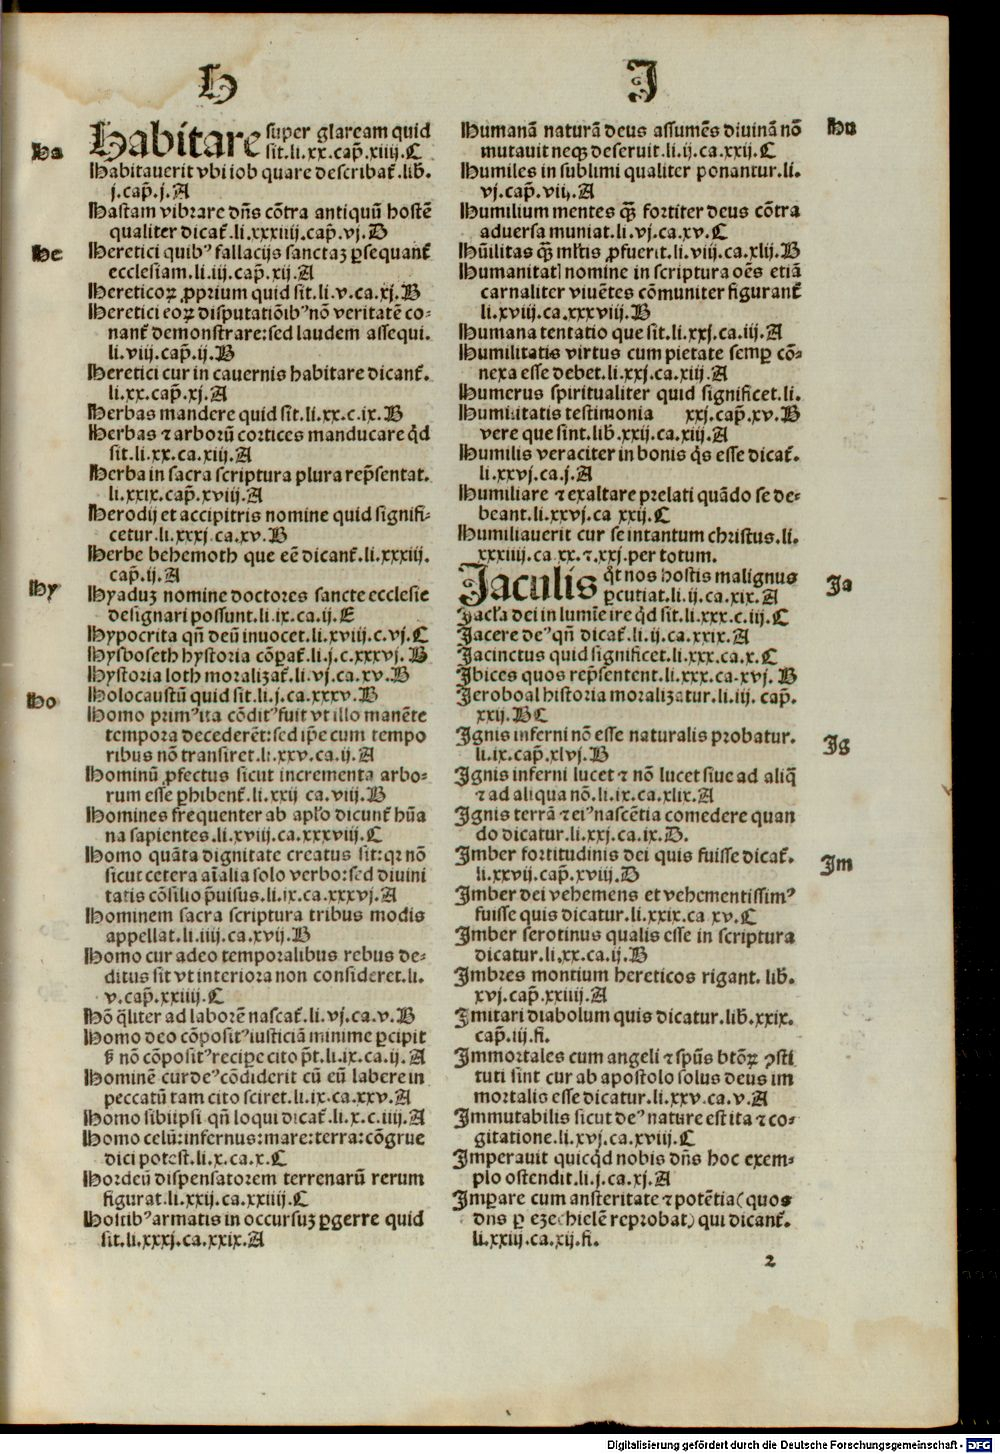 H
Ha
Habitare super glaream quid
sit.li.xx.cap̄.xiiij.C
Habitauerit vbi iob quare describat᷑.lib̄.
j.cap̄.j.A
Hastam vibrare dn̄s cōtra antiquū hostē
qualiter dicat᷑.li.xxxiiij.cap̄.vj.D
He
Heretici quibꝰ fallacijs sanctaꝫ ꝑsequant᷑
ecclesiam.li.iij.cap̄.xij.A
Hereticoꝝ ꝓprium quid sit.li.v.ca.xj.B
Heretici eoꝝ disputatiōibꝰ nō veritatē co⸗
nant᷑ demonstrare:sed laudem assequi.
li.viij.cap̄.ij.B
Heretici cur in cauernis habitare dicant᷑.
li.xx.cap̄.xj.A
Herbas mandere quid sit.li.xx.c.ix.B
Herbas ⁊ arborū cortices manducare qͥd
sit.li.xx.ca.xiij.A
Herba in sacra scriptura plura rep̄sentat.
li.xxix.cap̄.xviij.A
Herodij et accipitris nomine quid signifi⸗
cetur.li.xxxj.ca.xv.B
Herbe behemoth que eē dicant᷑.li.xxxiij.
cap.ij.A
Hy
Hyaduꝫ nomine doctores sancte ecclesie
designari possunt.li.ix.ca.ij.E
Hypocrita qn̄ deū inuocet.li.xviij.c.vj.C
Hysboseth hystoria cōꝑat᷑.li.j.c.xxxvj.B
Hystoria loth moralizat᷑.li.vj.ca.xv.B
Ho
Holocaustū quid sit.li.j.ca.xxxv.B
Homo primꝰ ita cōditꝰ fuit vt illo manēte
tempora decederēt:sed ip̄e cum tempo
ribus nō transiret.li.xxv.ca.ij.A
Hominū ꝓfectus sicut incrementa arbo⸗
rum esse ꝑhibent᷑.li.xxij ca.viij.B
Homines frequenter ab apl̓o dicunt᷑ hūa
na sapientes.li.xviij.ca.xxxviij.C
Homo quāta dignitate creatus sit:qꝛ nō
sicut cetera aīalia solo verbo:sed diuini
tatis cōsilio ꝓuisus.li.ix.ca.xxxvj.A
Hominem sacra scriptura tribus modis
appellat.li.iiij.ca.xvij.B
Homo cur adeo temporalibus rebus de⸗
ditus sit vt interiora non consideret.li.
v.cap̄.xxiiij.C
Hō q̄liter ad laborē nascat᷑.li.vj.ca.v.B
Homo deo cōpositꝰ iusticiā minime ꝑcipit
ß nō cōpositꝰ recipe cito p̄t.li.ix.ca.ij.A
Hominē cur deꝰ cōdiderit cū eū labere in
peccatū tam cito sciret.li.ix.ca.xxv.A
Homo sibiipsi qn̄ loqui dicat᷑.li.x.c.iiij.A
Homo celū:infernus:mare:terra:cōgrue
dici potest.li.x.ca.x.C
Hordeū dispensatorem terrenarū rerum
figurat.li.xxij.ca.xxiiij.C
Hostibꝰ armatis in occursuꝫ ꝑgerre quid
sit.li.xxxj.ca.xxix.A
J
Hu
Humanā naturā deus assumēs diuinā nō
mutauit neqꝫ deseruit.li.ij.ca.xxij.C
Humiles in sublimi qualiter ponantur.li.
vj.cap̄.vij.A
Humilium mentes qꝫ̄ fortiter deus cōtra
aduersa muniat.li.vj.ca.xv.C
Hūilitas qꝫ̄ ml̓tis ꝓfuerit.li.viij.ca.xlij.B
Humanitatꝭ nomine in scriptura oēs etiā
carnaliter viuētes cōmuniter figurant᷑
li.xviij.ca.xxxviij.B
Humana tentatio que sit.li.xxj.ca.iij.A
Humilitatis virtus cum pietate semꝑ cō⸗
nexa esse debet.li.xxj.ca.xiij.A
Humerus spiritualiter quid significet.li.
Humilitatis testimonia xxj.cap̄.xv.B
vere que sint.lib̄.xxij.ca.xiij.A
Humilis veraciter in bonis qͥs esse dicat᷑.
li.xxvj.ca.j.A
Humiliare ⁊ exaltare prelati quādo se de⸗
beant.li.xxvj.ca xxij.C
Humiliauerit cur se intantum christus.li.
xxxiiij.ca.xx.⁊.xxj.per totum.
Ja
Jaculis qͦt nos hostis malignus
ꝑcutiat.li.ij.ca.xix.A
Jacl̓a dei in lumīe ire qͥd sit.li.xxx.c.iij.C
Jacere deꝰ qn̄ dicat᷑.li.ij.ca.xxix.A
Jacinctus quid significet.li.xxx.ca.x.C
Jbices quos rep̄sentent.li.xxx.ca.xvj.B
Jeroboal historia moralizatur.li.iij. cap̄.
xxij.BC
Jg
Jgnis inferni nō esse naturalis probatur.
li.ix.cap̄.xlvj.B
Jgnis inferni lucet ⁊ nō lucet siue ad aliq̄
⁊ ad aliqua nō.li.ix.ca.xlix.A
Jgnis terrā ⁊ eiꝰ nascētia comedere quan
do dicatur.li.xxj.ca.ix.D.
Jm
Jmber fortitudinis dei quis fuisse dicat᷑.
li.xxvij.cap̄.xviij.D
Jmber dei vehemens et vehementissimꝰ
fuisse quis dicatur.li.xxix.ca.xv.C
Jmber serotinus qualis esse in scriptura
dicatur.li.xx.ca.ij.B
Jmbres montium hereticos rigant. lib̄.
xvj.cap̄.xxiiij.A
Jmitari diabolum quis dicatur.lib̄.xxix.
cap̄.iij.fi.
Jmmortales cum angeli ⁊ spūs btōꝝ ꝯsti
tuti sint cur ab apostolo solus deus im
mortalis esse dicatur.li.xxv.ca.v.A
Jmmutabilis sicut deꝰ nature est ita ⁊ co⸗
gitatione.li.xvj.ca.xviij.C
Jmperauit quicqͥd nobis dn̄s hoc exem⸗
plo ostendit.li.j.ca.xj.A
Jmꝑare cum ansteritate ⁊ potētia(quos
dn̄s ꝑ ezechielē reprobat) qui dicant᷑.
li.xxiij.ca.xij.fi.
2
Digitalisierung gefördert durch die Deutsche Forschungsgemeinschaft - DFG